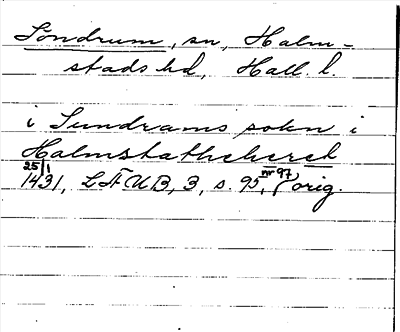 Söndrum, sn, Halm-
stads hd, Hall. l.
i Sundrams sokn i
Halmstathehered
25/1
1431, LÄUB, 3, s. 95, nr 97, orig.